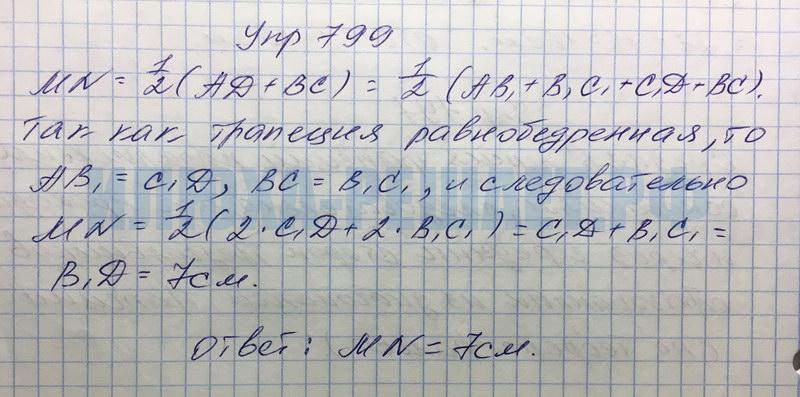 Упр 799
MN = 1/2 (AD + BC) = 1/2 (AB₁ + B₁C₁ + C₁D + BC).
Так как трапеция равнобедренная, то
AB₁ = C₁D, BC = B₁C₁, и следовательно
MN = 1/2 (2·C₁D + 2·B₁C₁) = C₁D + B₁C₁ =
B₁D = 7см.
Ответ: MN = 7см.